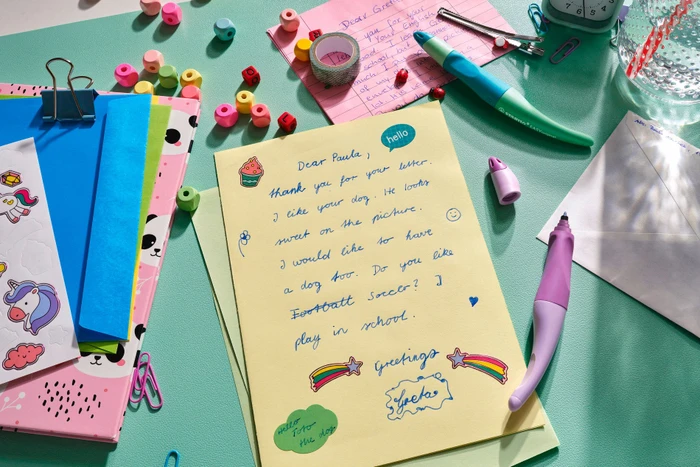 Dear Greta
you for your
hello
Dear Paula,
thank you for your letter.
I like your dog. He looks
sweet on the picture.
I would like to have
a dog too. Do you like
Football Soccer? I
play in school.
Greetings
Greta
Hello
Toto
the dog